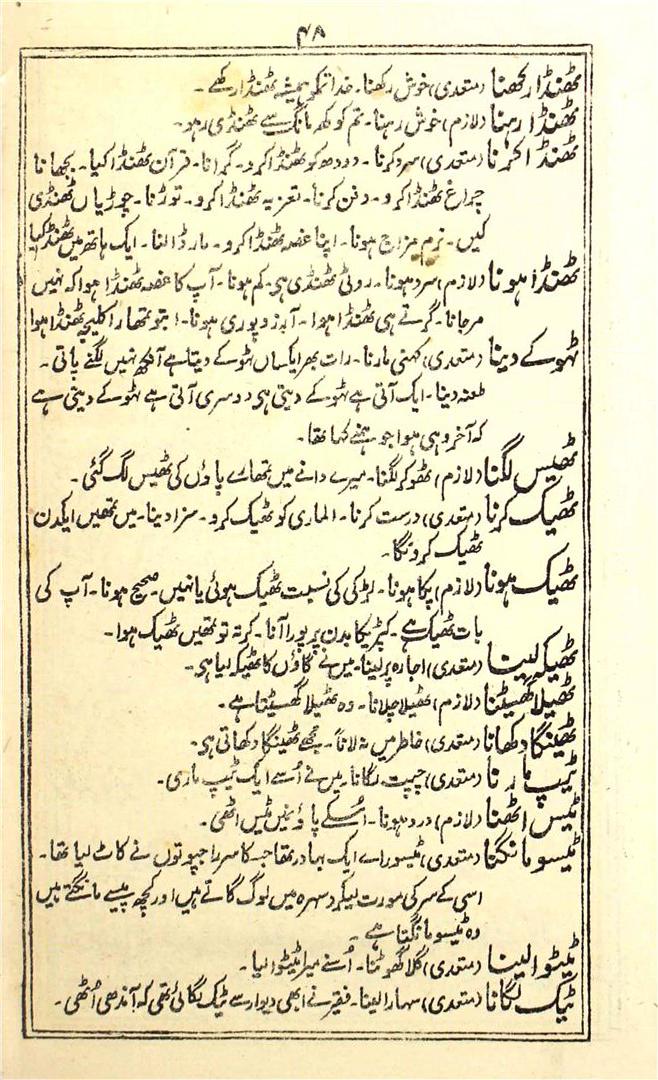 ۴۸
ٹھنڈا رکھنا (متعدی) خوش رکھنا۔ خدا تمکو ہمیشہ ٹھنڈا رکھے۔
ٹھنڈا رہنا (لازم) خوش رہنا۔ تم کوکھ مانگ سے ٹھنڈی رہو۔
ٹھنڈا کرنا (متعدی) سرد کرنا۔ دودھ کو ٹھنڈا کرو۔ گرانا۔ قرآن ٹھنڈا کیا۔ بجھانا
چراغ ٹھنڈا کرو۔ دفن کرنا۔ تعزیہ ٹھنڈا کرو۔ توڑنا۔ چوڑیاں ٹھنڈی
کیں۔ نرم مزاج ہونا۔ اپنا غصہ ٹھنڈا کرو۔ مار ڈالنا۔ ایک ہاتھ میں ٹھنڈا کیا
ٹھنڈا ہونا (لازم) سرد ہونا۔ روٹی ٹھنڈی ہی۔ کم ہونا۔ آپ کا غصہ ٹھنڈا ہوا کہ نہیں
مر جانا۔ گرتے ہی ٹھنڈا ہوا۔ آرزو پوری ہونا۔ ابتو تمھارا کلیجہ ٹھنڈا ہوا
ٹہوکے دینا (متعدی) کہنی مارنا۔ رات بھر ایکساں ٹہوکے دیتا ہے آنکھ نہیں لگنے پاتی۔
طعنہ دینا۔ ایک آتی ہے ٹہوکے دیتی ہی دوسری آتی ہے ٹہوکے دیتی ہے
کہ آخر وہی ہوا جو ہمنے کہا تھا۔
ٹھیس لگنا (لازم) ٹھوکر لگنا۔ میرے دانے میں تمھارے پاؤں کی ٹھیس لگ گئی۔
ٹھیک کرنا (متعدی) درست کرنا۔ الماری کو ٹھیک کرو۔ سزا دینا۔ میں تمھیں ایکدن
ٹھیک کرونگا۔
ٹھیک ہونا (لازم) پکا ہونا۔ لڑکی کی نسبت ٹھیک ہوئی یا نہیں۔ صحیح ہونا۔ آپ کی
بات ٹھیک ہے۔ کپڑیکا بدن پر پورا آنا۔ کرتہ تو تمھیں ٹھیک ہوا۔
ٹھیکہ لینا (متعدی) اجارہ پر لینا۔ میں نے گاؤں کا ٹھیکہ لیا ہی۔
ٹھیلا گھسیٹنا (لازم) ٹھیلا چلانا۔ وہ ٹھیلا گھسیٹتا ہے۔
ٹھینگا دکھانا (متعدی) خاطر میں نہ لانا۔ مجھے ٹھینگا دکھاتی ہی۔
ٹیپ مارنا (متعدی) چپت لگانا۔ میں نے اُسے ایک ٹیپ ماری۔
ٹیس اٹھنا (لازم) درد ہونا۔ اُسکے پاؤں میں ٹیس اٹھی۔
ٹیسو مانگنا (متعدی) ٹیسو راے ایک بہادر تھا جسکا سر راجپوتوں نے کاٹ لیا تھا۔
اسی کے سر کی مورت لیکر دسہرہ میں لوگ گاتے ہیں اور کچھ پیسے مانگتے ہیں
وہ ٹیسو مانگتا ہے۔
ٹیٹوا لینا (متعدی) گلا گھونٹنا۔ اُسنے میرا ٹیٹوا لیا۔
ٹیک لگانا (متعدی) سہارا لینا۔ فقیر نے ابھی دیوار سے ٹیک لگائی تھی کہ آندھی اُٹھی۔